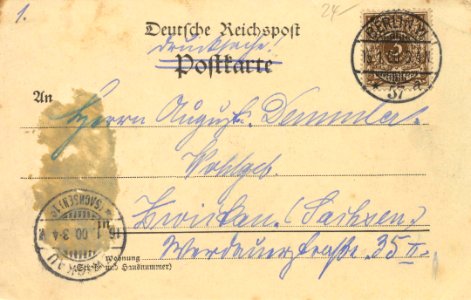 1.
24-
Deutsche Reichspost
Drucksache!
Postkarte
BERLIN, W.
57
An
Herrn August Demmler
Wohlgeb.
Zwickau. (Sachsen)
Werdauerstraße 35 II.
Wohnung
(Straße und Hausnummer)
ZWICKAU
(SACHSEN) 1.
00 3-4